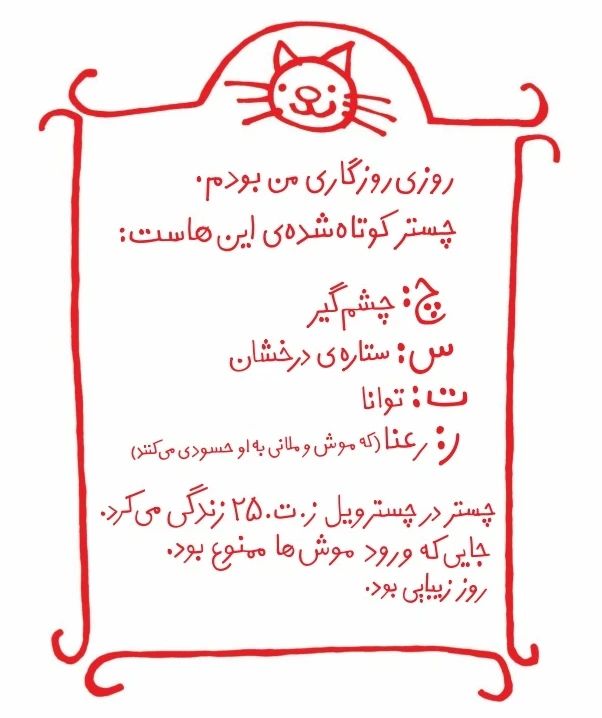 روزی روزگاری من بودم.
چستر کوتاه‌شده‌ی این هاست:
چ: چشم‌گیر
س: ستاره‌ی درخشان
ت: توانا
ر: رعنا (که موش و ملانی به او حسودی می‌کنند)
چستر در چسترویل ز.ت.۲۵ زندگی می‌کرد.
جایی‌که ورود موش‌ها ممنوع بود.
روز زیبایی بود.